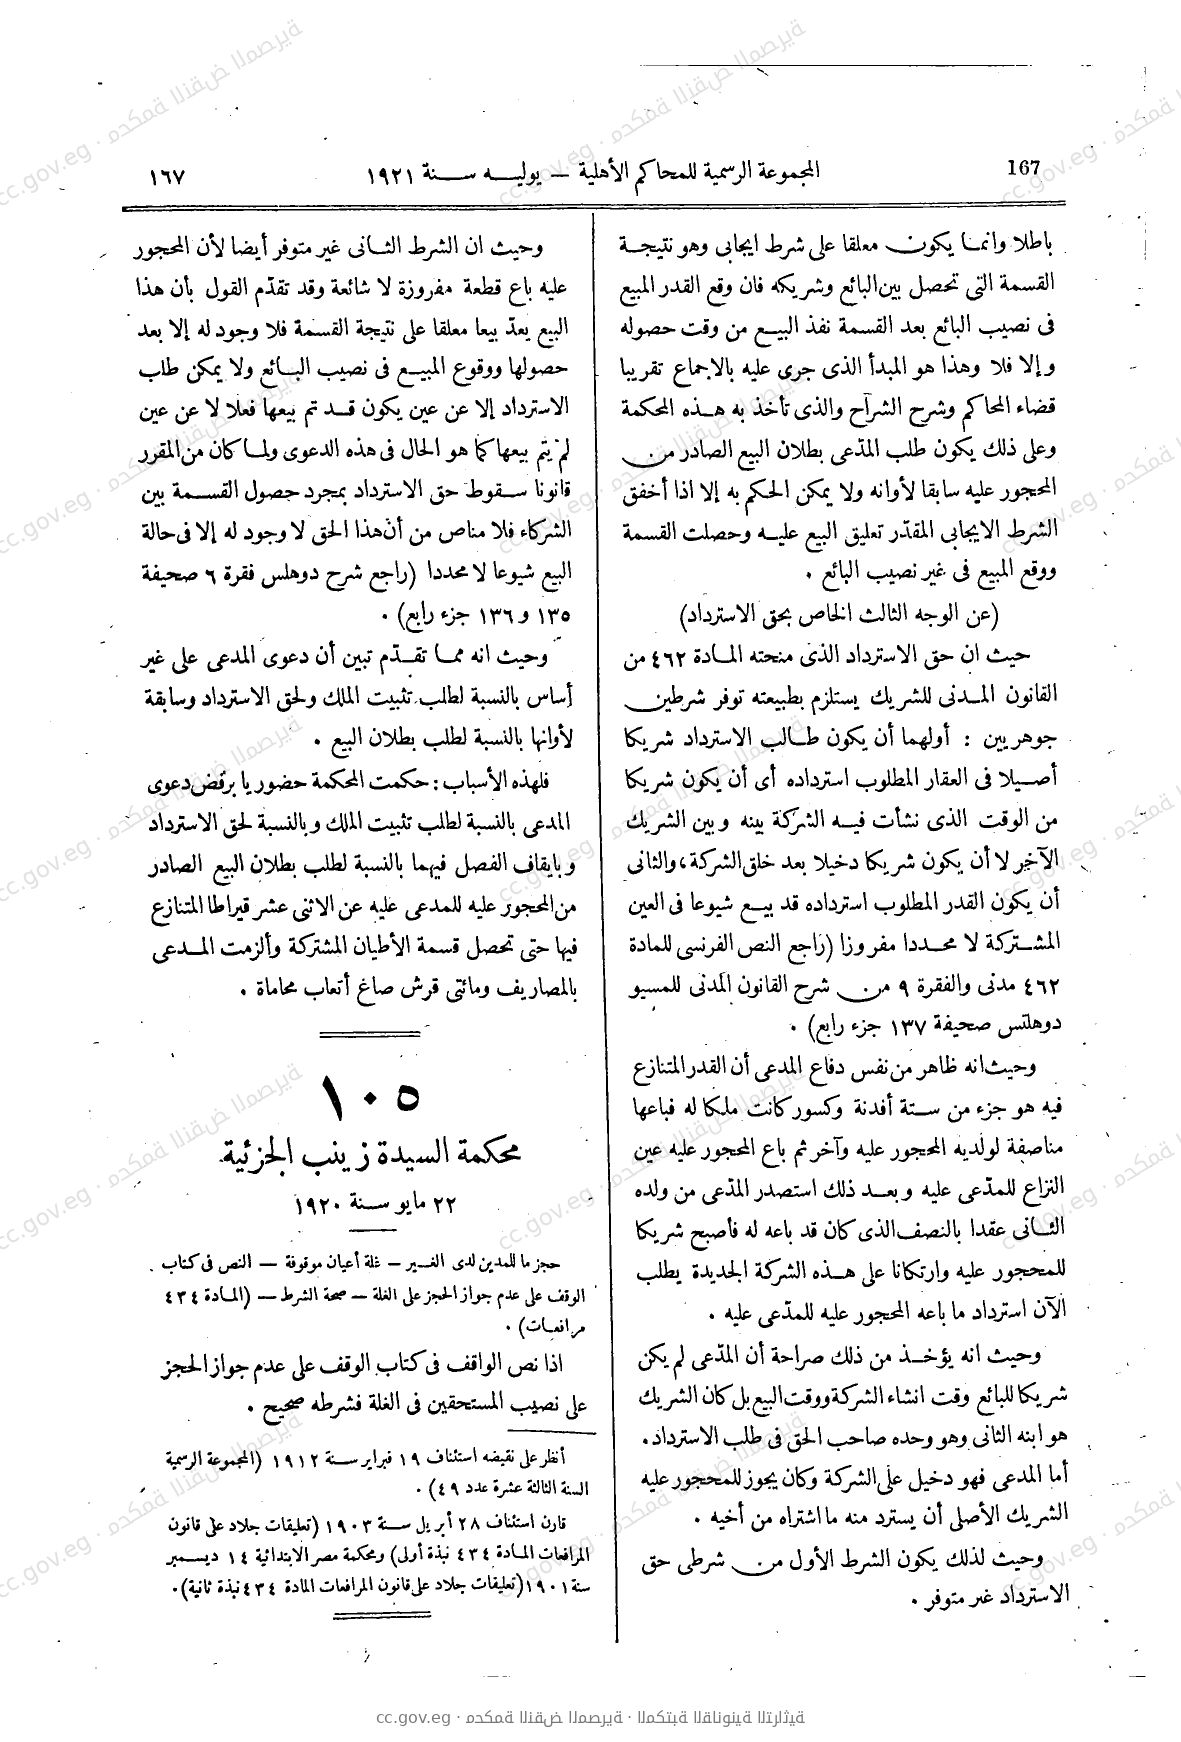 167
المجموعة الرسمية للمحاكم الأهلية — يوليه سنة ١٩٢١
١٦٧
باطلا وانما يكون معلقا على شرط ايجابى وهو نتيجة
القسمة التى تحصل بين البائع وشريكه فان وقع القدر المبيع
فى نصيب البائع بعد القسمة نفذ البيع من وقت حصوله
وإلا فلا وهذا هو المبدأ الذى جرى عليه بالاجماع تقريبا
قضاء المحاكم وشرح الشرآح والذى تأخذ به هذه المحكمة
وعلى ذلك يكون طلب المدّعى بطلان البيع الصادر من
المحجور عليه سابقا لأوانه ولا يمكن الحكم به إلا اذا أخفق
الشرط الايجابى المقدّر تعليق البيع عليه وحصلت القسمة
ووقع المبيع فى غير نصيب البائع .
(عن الوجه الثالث الخاص بحق الاسترداد)
حيث ان حق الاسترداد الذى منحته المادة ٤٦٢ من
القانون المدنى للشريك يستلزم بطبيعته توفر شرطين
جوهريين : أولهما أن يكون طالب الاسترداد شريكا
أصيلا فى العقار المطلوب استرداده أى أن يكون شريكا
من الوقت الذى نشأت فيه الشركة بينه وبين الشريك
الآخر لا أن يكون شريكا دخيلا بعد خلق الشركة، والثانى
أن يكون القدر المطلوب استرداده قد بيع شيوعا فى العين
المشتركة لا محددا مفروزا (راجع النص الفرنسى للمادة
٤٦٢ مدنى والفقرة ٩ من شرح القانون المدنى للمسيو
دوهلتس صحيفة ١٣٧ جزء رابع) .
وحيث انه ظاهر من نفس دفاع المدعى أن القدر المتنازع
فيه هو جزء من ستة أفدنة وكسور كانت ملكا له فباعها
مناصفة لولديه المحجور عليه وآخر ثم باع المحجور عليه عين
النزاع للمدّعى عليه وبعد ذلك استصدر المدّعى من ولده
الثانى عقدا بالنصف الذى كان قد باعه له فأصبح شريكا
للمحجور عليه وارتكانا على هذه الشركة الجديدة يطلب
الآن استرداد ما باعه المحجور عليه للمدّعى عليه .
وحيث انه يؤخذ من ذلك صراحة أن المدّعى لم يكن
شريكا للبائع وقت انشاء الشركة ووقت البيع بل كان الشريك
هو ابنه الثانى وهو وحده صاحب الحق فى طلب الاسترداد.
أما المدعى فهو دخيل على الشركة وكان يجوز للمحجور عليه
الشريك الأصلى أن يسترد منه ما اشتراه من أخيه .
وحيث لذلك يكون الشرط الأول من شرطى حق
الاسترداد غير متوفر .
وحيث ان الشرط الثانى غير متوفر أيضا لأن المحجور
عليه باع قطعة مفروزة لا شائعة وقد تقدّم القول بأن هذا
البيع يعدّ بيعا معلقا على نتيجة القسمة فلا وجود له إلا بعد
حصولها ووقوع المبيع فى نصيب البائع ولا يمكن طلب
الاسترداد إلا عن عين يكون قد تم بيعها فعلا لا عن عين
لم يتم بيعها كما هو الحال فى هذه الدعوى ولما كان من المقرر
قانونا سقوط حق الاسترداد بمجرد حصول القسمة بين
الشركاء فلا مناص من أن هذا الحق لا وجود له إلا فى حالة
البيع شيوعا لا محددا (راجع شرح دوهلس فقرة ٦ صحيفة
١٣٥ و١٣٦ جزء رابع) .
وحيث انه مما تقدّم تبين أن دعوى المدعى على غير
أساس بالنسبة لطلب تثبيت الملك ولحق الاسترداد وسابقة
لأوانها بالنسبة لطلب بطلان البيع .
فلهذه الأسباب : حكمت المحكمة حضوريا برفض دعوى
المدعى بالنسبة لطلب تثبيت الملك وبالنسبة لحق الاسترداد
وبايقاف الفصل فيهما بالنسبة لطلب بطلان البيع الصادر
من المحجور عليه للمدعى عليه عن الاثنى عشر قيراطا المتنازع
فيها حتى تحصل قسمة الأطيان المشتركة وألزمت المدعى
بالمصاريف ومائتى قرش صاغ أتعاب محاماة .
١٠٥
محكمة السيدة زينب الجزئية
٢٢ مايو سنة ١٩٢٠
حجز ما للمدين لدى الغير — غلة أعيان موقوفة — النص فى كتاب
الوقف على عدم جواز الحجز على الغلة — صحة الشرط — (المادة ٤٣٤
مرافعات) .
اذا نص الواقف فى كتاب الوقف على عدم جواز الحجز
على نصيب المستحقين فى الغلة فشرطه صحيح .
أنظر على نقيضه استئناف ١٩ فبراير سنة ١٩١٢ (المجموعة الرسمية
السنة الثالثة عشرة عدد ٤٩) .
قارن استئناف ٢٨ أبريل سنة ١٩٠٣ (تعليقات جلاد على قانون
المرافعات المادة ٤٣٤ نبذة أولى) ومحكمة مصر الابتدائية ١٤ ديسمبر
سنة ١٩٠١ (تعليقات جلاد على قانون المرافعات المادة ٤٣٤ نبذة ثانية).
cc.gov.eg · محكمة النقض المصرية · المكتبة القانونية التراثية